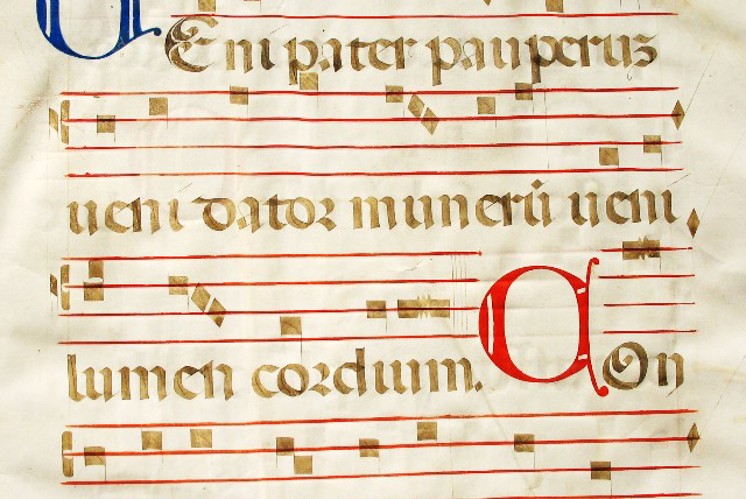 UEni pater pauperuʒ
ueni dator munerū ueni
lumen cordium. COn